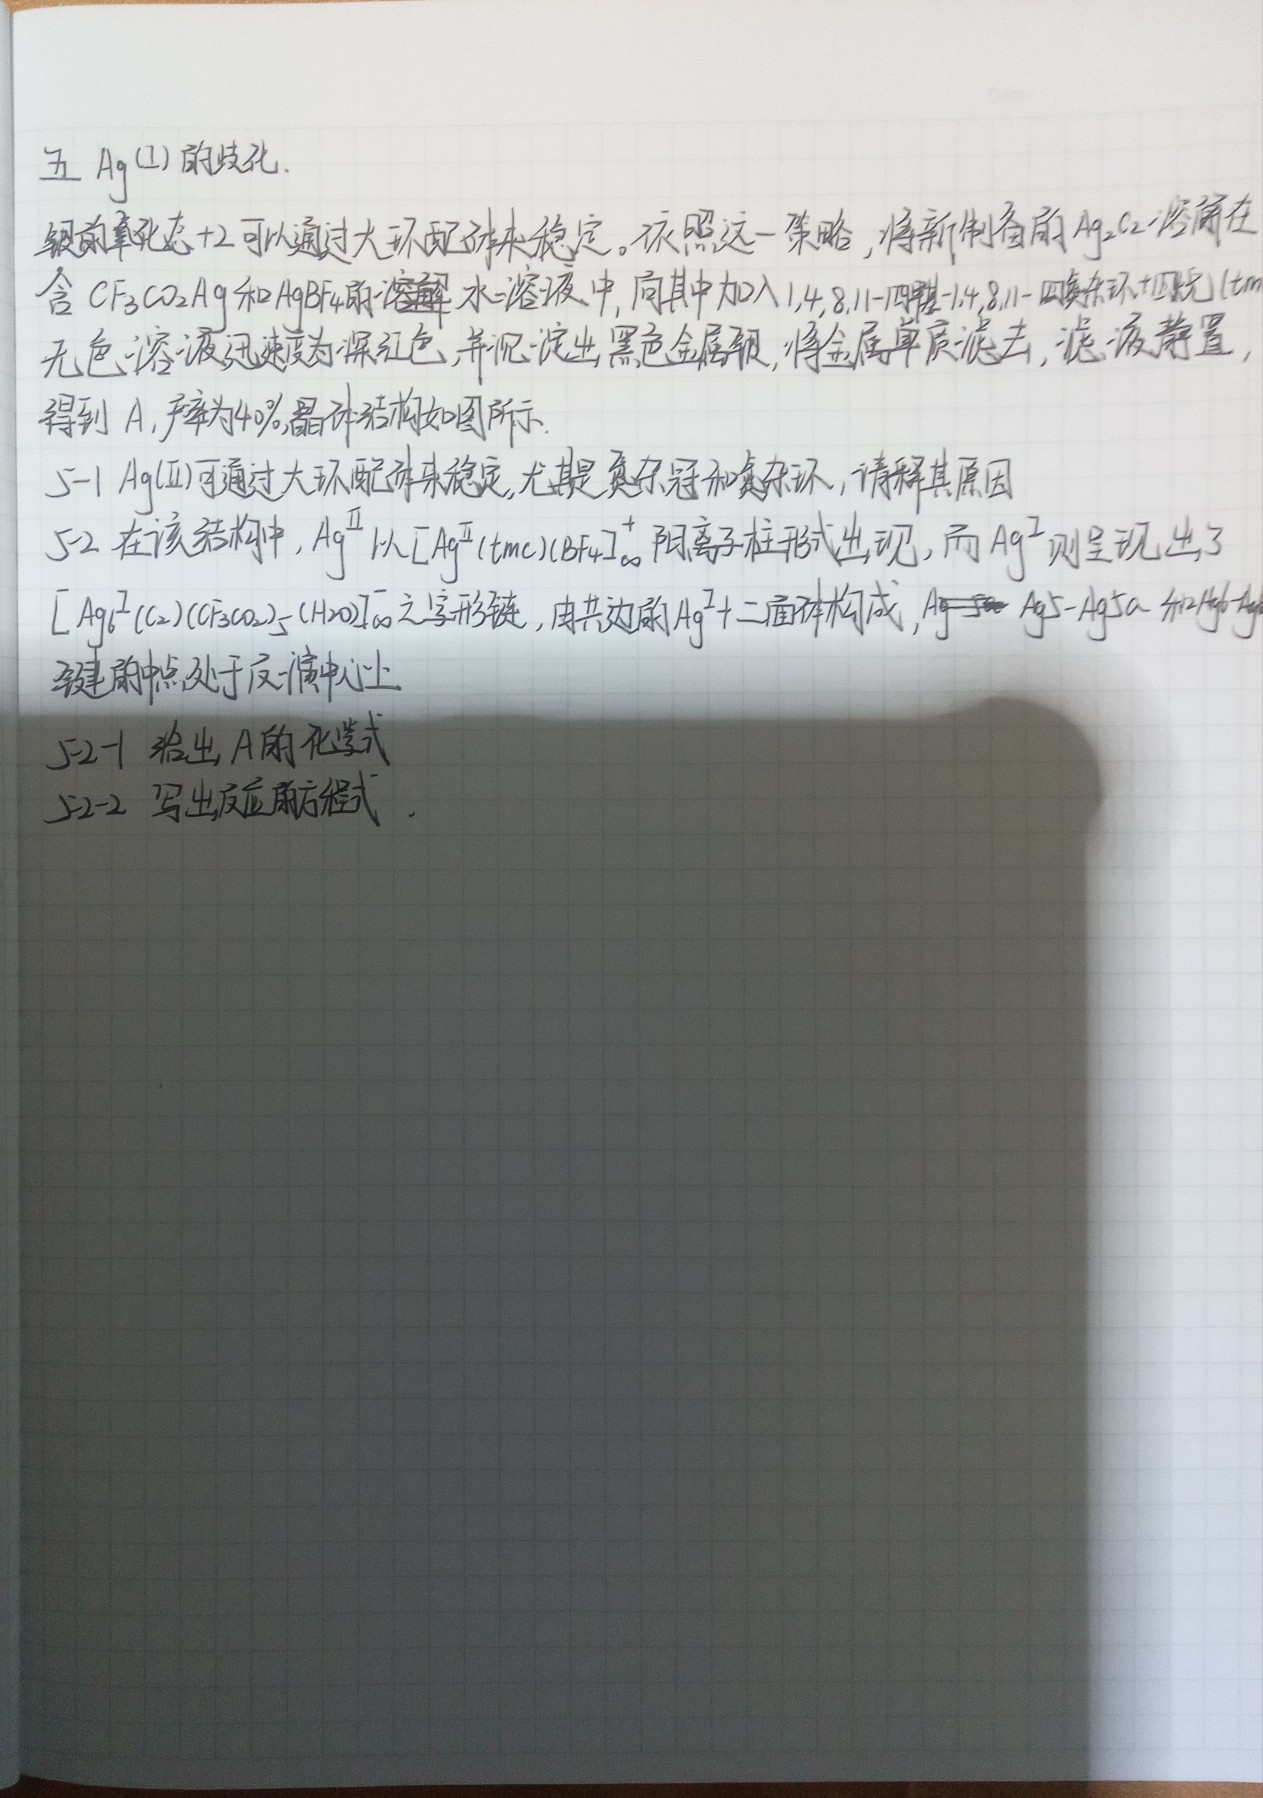 五 Ag(I)的歧化.
银的氧化态+2可以通过大环配体来稳定。依照这一策略,将新制备的Ag2C2溶解在
含CF3CO2Ag和AgBF4的水溶液中,向其中加入1,4,8,11-四甲基-1,4,8,11-四氮杂环十四烷(tm
无色溶液迅速变为深红色,并沉淀出黑色金属银,将金属单质滤去,滤液静置,
得到A,产率为40%,晶体结构如图所示.
5-1 Ag(II)可通过大环配体来稳定,尤其是氮杂冠和氮杂环,请释其原因
5-2 在该结构中,Ag^II以[Ag^II(tmc)(BF4]∞^+阳离子柱形式出现,而Ag^I则呈现出了
[Ag6^I(C2)(CF3CO2)5(H2O)]∞^-之字形链,由共边的Ag^I十二面体构成,Ag5-Ag5a和Ag6-Ag6
键的中点处于反演中心上
5-2-1 给出A的化学式
5-2-2 写出反应的方程式.